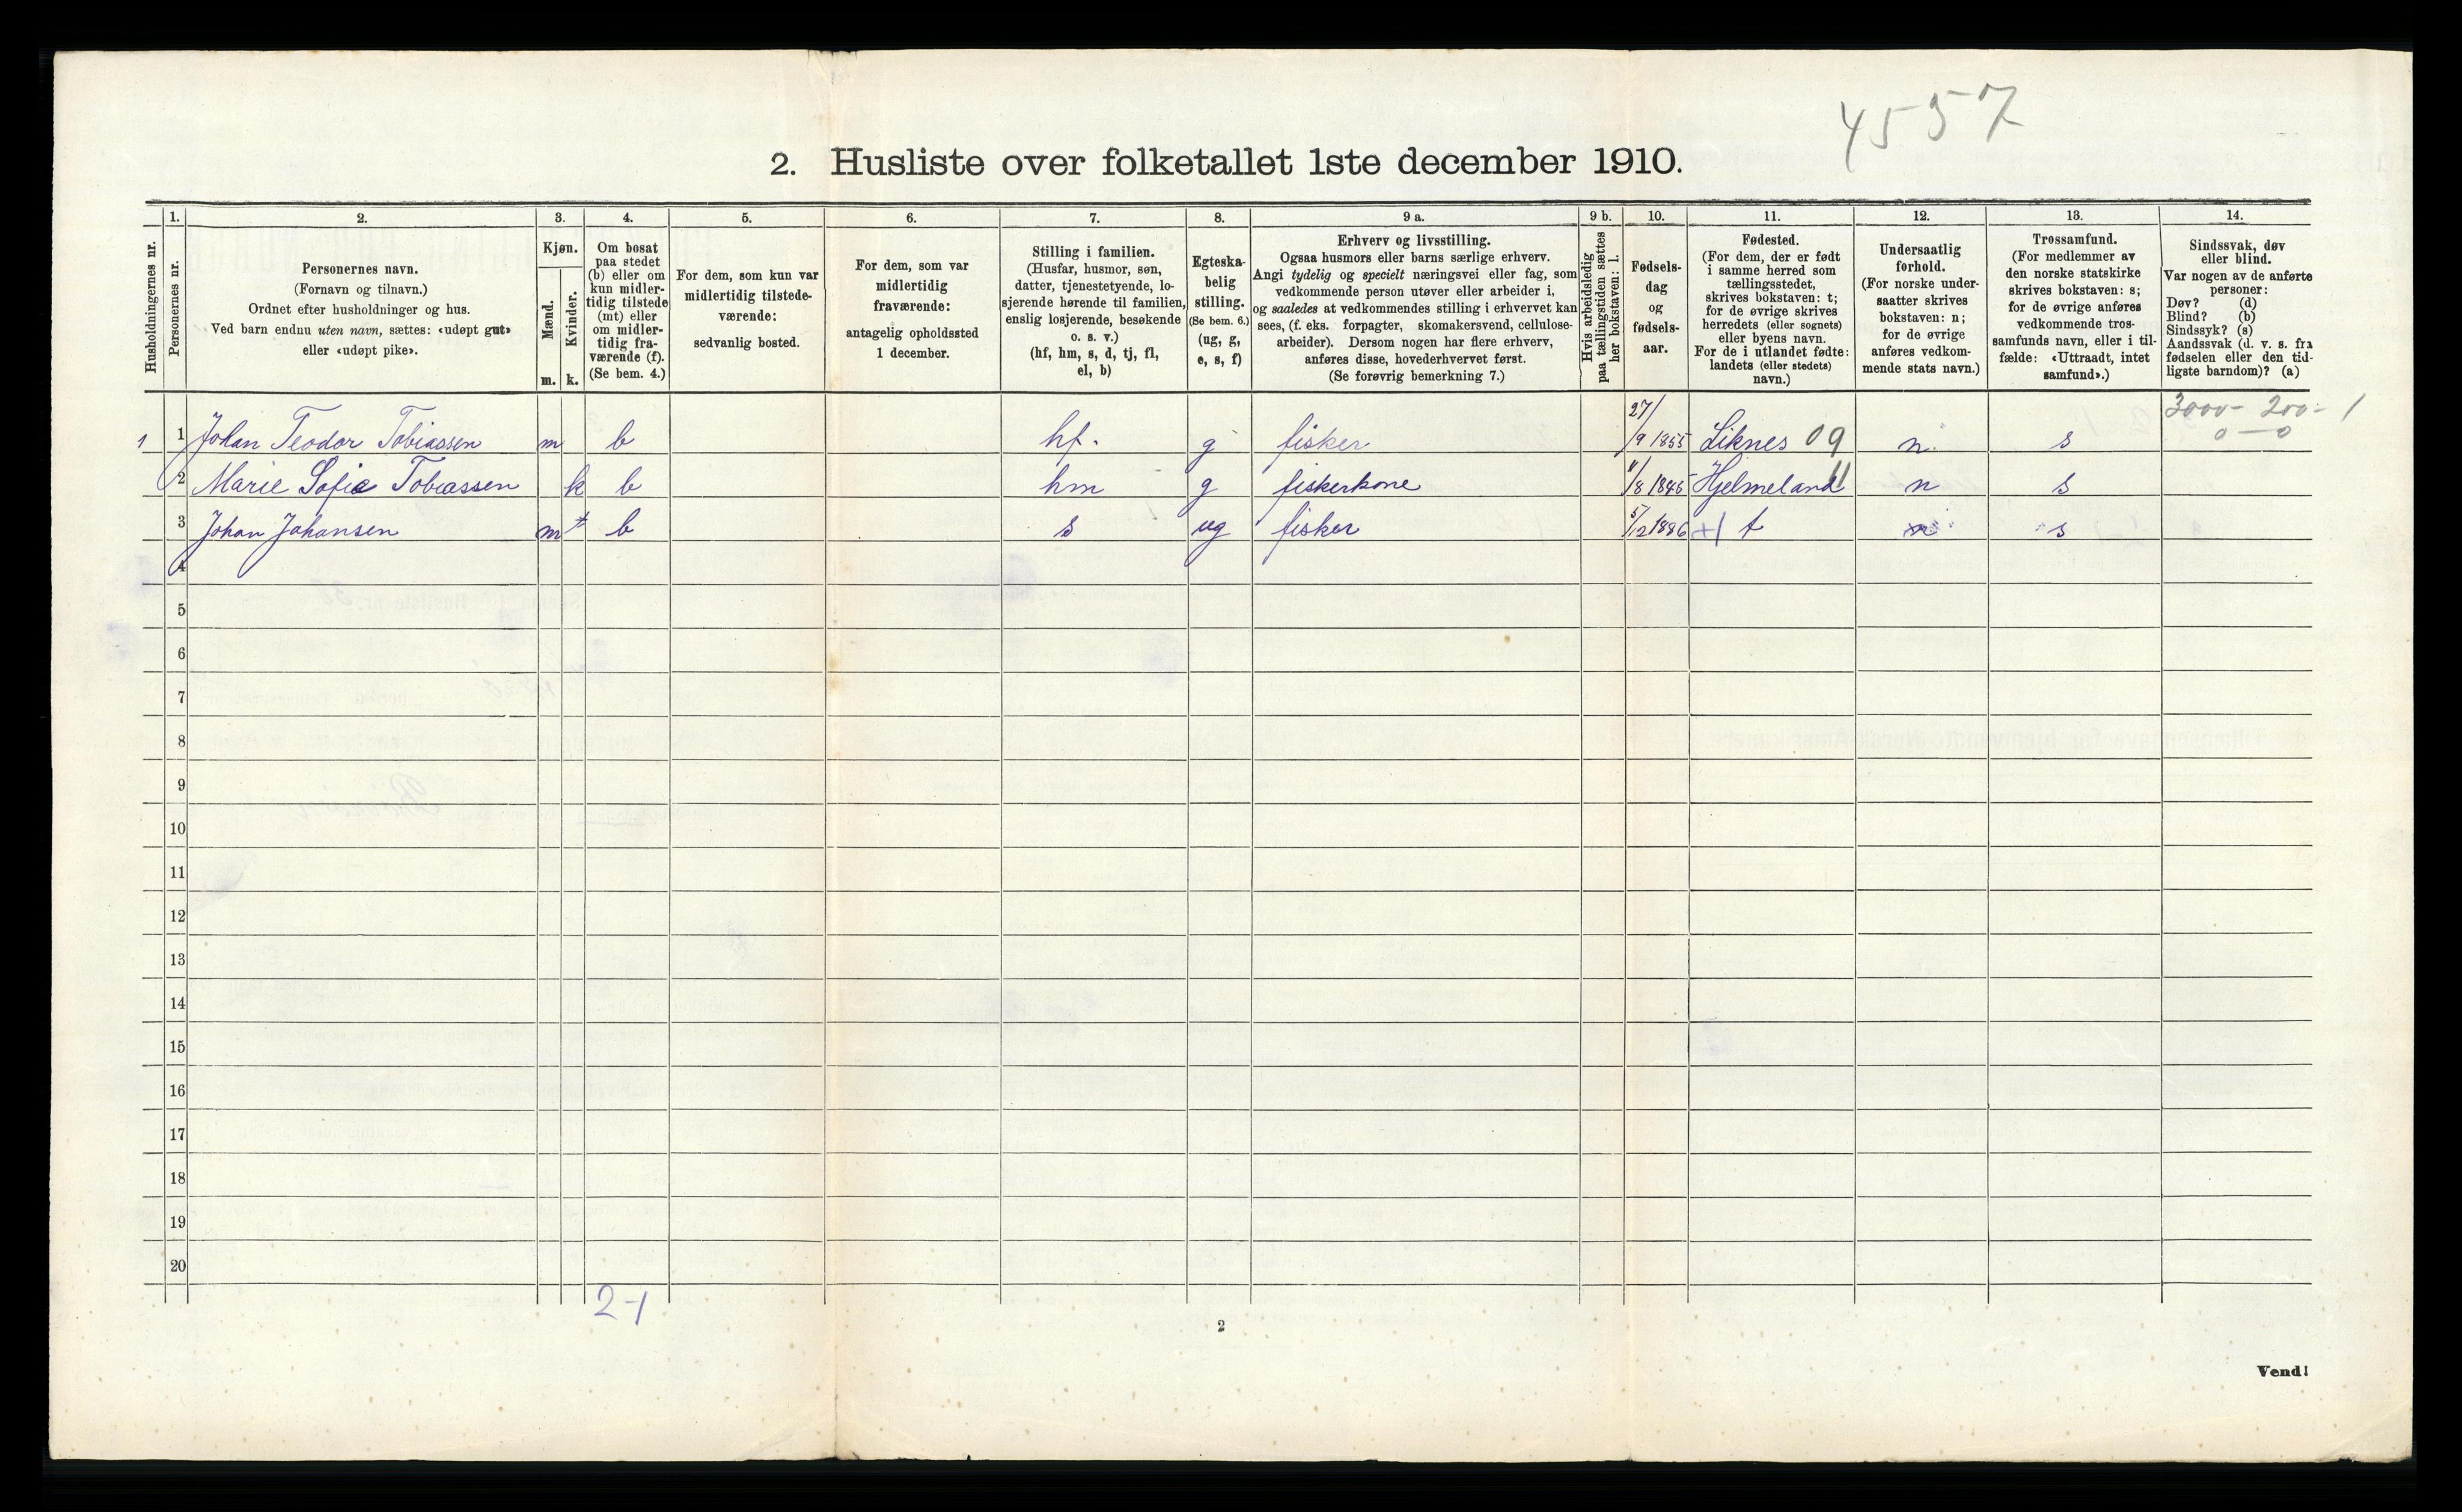 4557
2. Husliste over folketallet 1ste december 1910.
Husholdningernes nr.
1.
Personernes nr.
2.
Personernes navn.
(Fornavn og tilnavn.)
Ordnet efter husholdninger og hus.
Ved barn endnu uten navn, sættes: «udøpt gut»
eller «udøpt pike».
3.
Kjøn.
Mænd.
Kvinder.
m. k.
4.
Om bosat
paa stedet
(b) eller om
kun midler-
tidig tilstede
(mt) eller
om midler-
tidig fra-
værende (f).
(Se bem. 4.)
5.
For dem, som kun var
midlertidig tilstede-
værende:
sedvanlig bosted.
6.
For dem, som var
midlertidig
fraværende:
antagelig opholdssted
1 december.
7.
Stilling i familien.
(Husfar, husmor, søn,
datter, tjenestetyende, lo-
sjerende hørende til familien,
enslig losjerende, besøkende
o. s. v.)
(hf, hm, s, d, tj, fl,
el, b)
8.
Egteska-
belig
stilling.
(Se bem. 6.)
(ug, g,
e, s, f)
9 a.
Erhverv og livsstilling.
Ogsaa husmors eller barns særlige erhverv.
Angi tydelig og specielt næringsvei eller fag, som
vedkommende person utøver eller arbeider i,
og saaledes at vedkommendes stilling i erhvervet kan
sees, (f. eks. forpagter, skomakersvend, cellulose-
arbeider). Dersom nogen har flere erhverv,
anføres disse, hovederhvervet først.
(Se forøvrig bemerkning 7.)
9 b.
Hvis arbeidsledig
paa tællingstiden sættes
her bokstaven: l.
10.
Fødsels-
dag
og
fødsels-
aar.
11.
Fødested.
(For dem, der er født
i samme herred som
tællingsstedet,
skrives bokstaven: t;
for de øvrige skrives
herredets (eller sognets)
eller byens navn.
For de i utlandet fødte:
landets (eller stedets)
navn.)
12.
Undersaatlig
forhold.
(For norske under-
saatter skrives
bokstaven: n;
for de øvrige
anføres vedkom-
mende stats navn.)
13.
Trossamfund.
(For medlemmer av
den norske statskirke
skrives bokstaven: s;
for de øvrige anføres
vedkommende tros-
samfunds navn, eller i til-
fælde: «Uttraadt, intet
samfund».)
14.
Sindssvak, døv
eller blind.
Var nogen av de anførte
personer:
Døv? (d)
Blind? (b)
Sindssyk? (s)
Aandssvak (d. v. s. fra
fødselen eller den tid-
ligste barndom)? (a)
3000- 200- 1
0 — 0
1 1 Johan Teodor Tobiassen m b hf. g fisker 27/9 1855 Liknes 09 n. s
2 Marie Sofie Tobiassen k b hm g fiskerkone 11/8 1845 Hjelmeland 11 n s
3 Johan Johansen m + b s ug fisker 5/12 1886 +1 t n s
4
5
6
7
8
9
10
11
12
13
14
15
16
17
18
19
20
2-1
2
Vend!